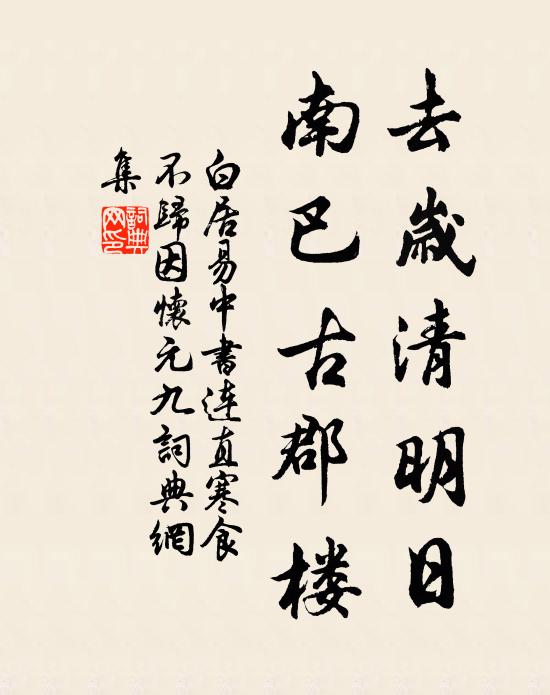 去歲清明日
南巴古郡楼
白居易中書連直寒食
不歸因懷元九詞典網
集
詞典
网印